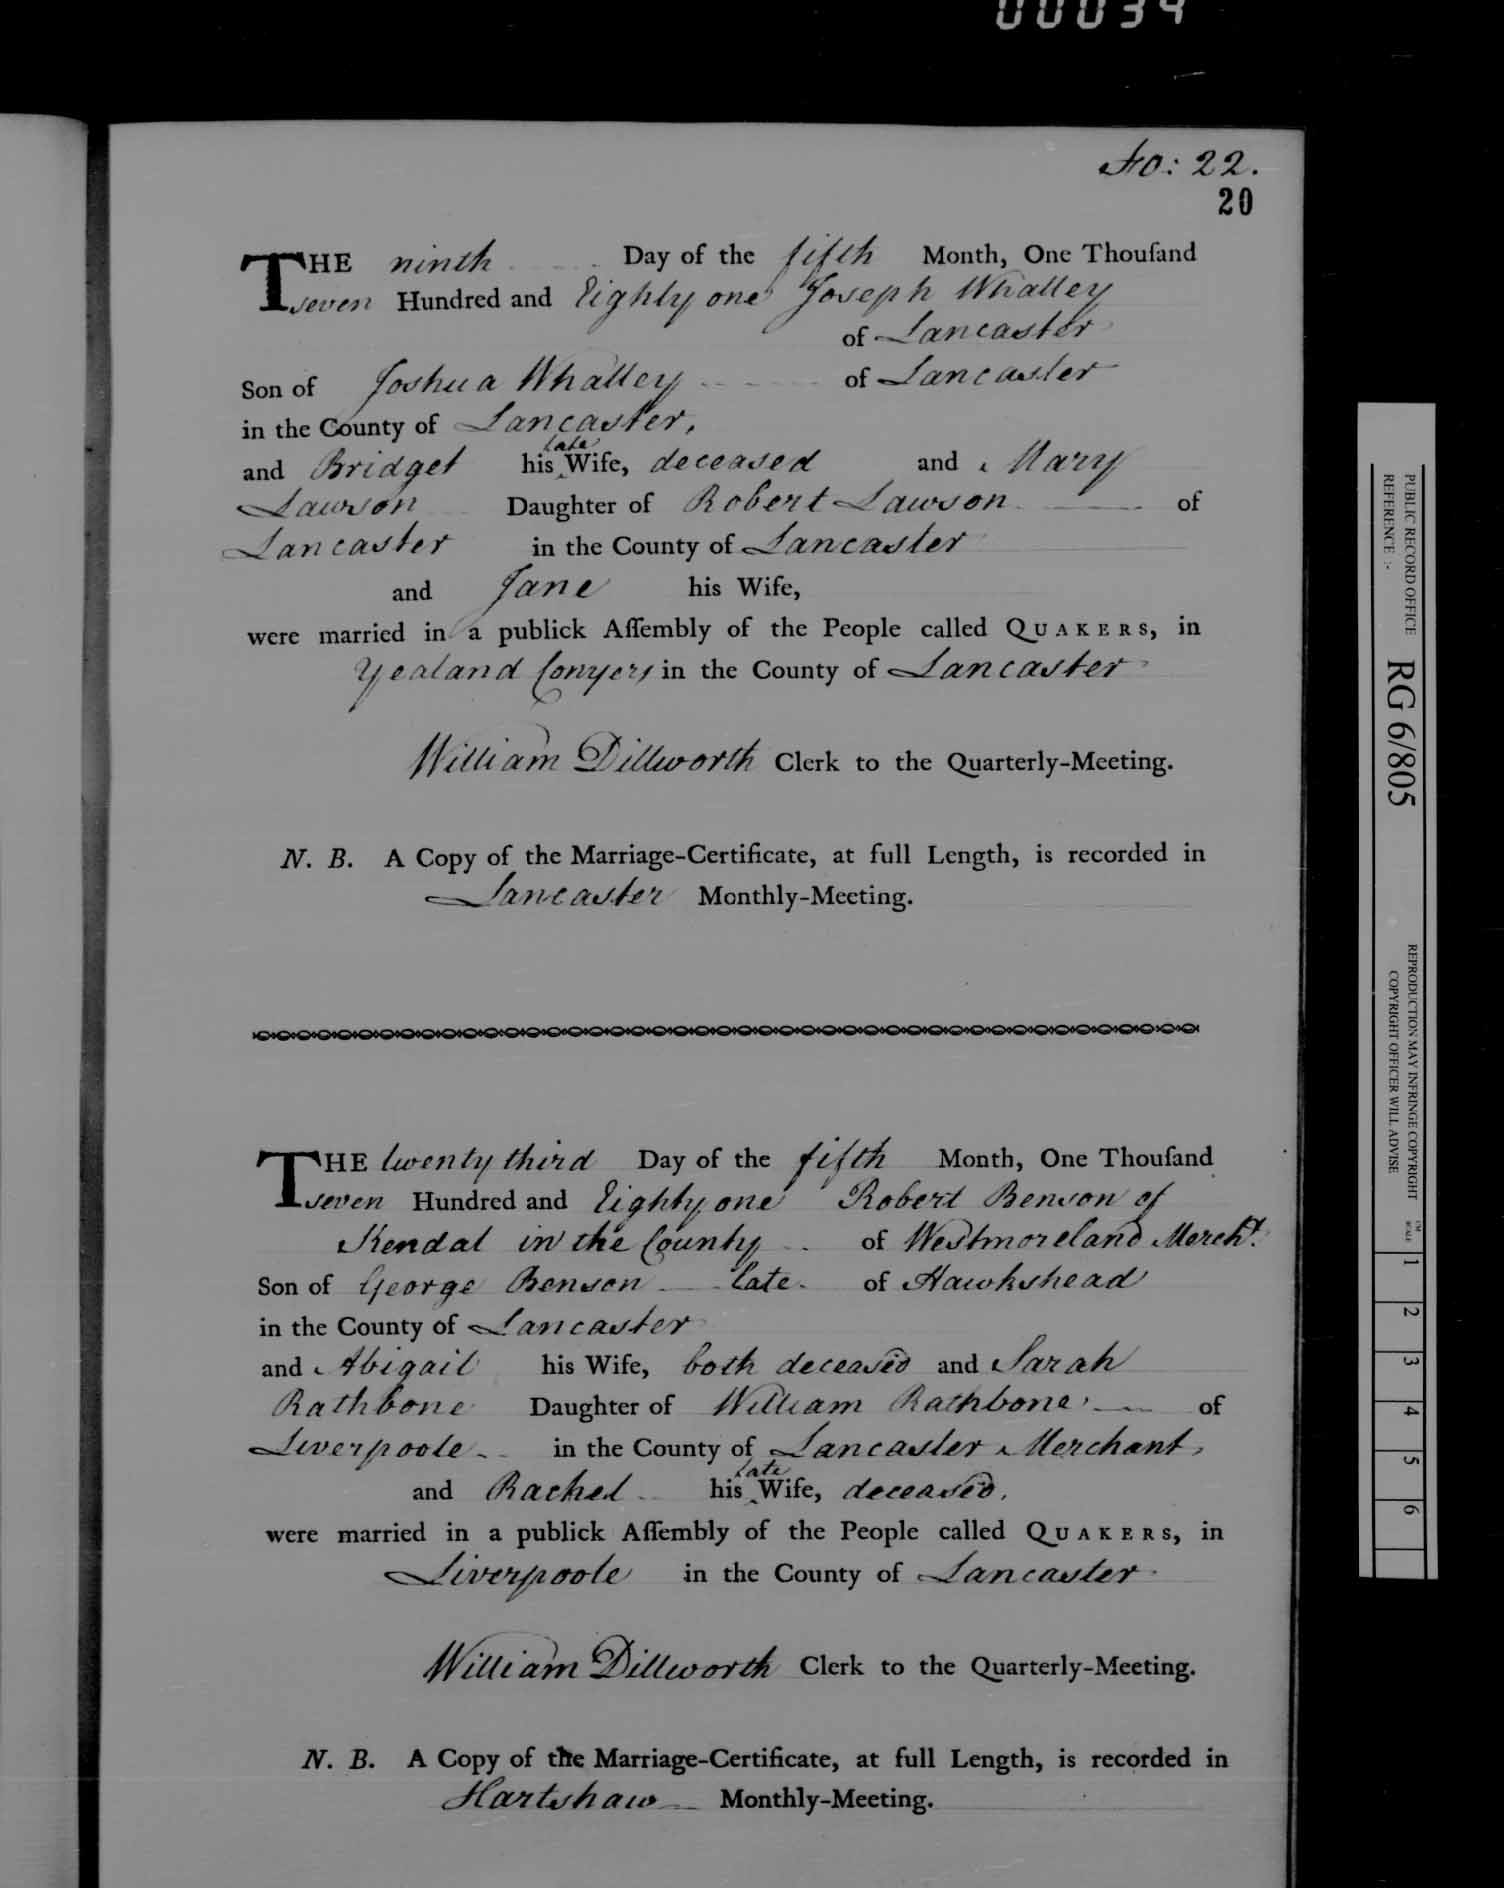 00034
Fo: 22.
20
THE ninth Day of the fifth Month, One Thouſand
seven Hundred and Eighty one Joseph Whalley
of Lancaster
Son of Joshua Whalley of Lancaster
in the County of Lancaster,
and Bridget his ^late Wife, deceased and Mary
Lawson Daughter of Robert Lawson of
Lancaster in the County of Lancaster
and Jane his Wife,
were married in a publick Aſſembly of the People called QUAKERS, in
Yealand Conyers in the County of Lancaster
William Dillworth Clerk to the Quarterly-Meeting.
N. B. A Copy of the Marriage-Certificate, at full Length, is recorded in
Lancaster Monthly-Meeting.
THE twenty third Day of the fifth Month, One Thouſand
seven Hundred and Eighty one Robert Benson of
Kendal in the County of Westmoreland Mercht.
Son of George Benson late of Hawkshead
in the County of Lancaster
and Abigail his Wife, both deceased and Sarah
Rathbone Daughter of William Rathbone of
Liverpoole in the County of Lancaster Merchant,
and Rachel his ^late Wife, deceased.
were married in a publick Aſſembly of the People called QUAKERS, in
Liverpoole in the County of Lancaster
William Dillworth Clerk to the Quarterly-Meeting.
N. B. A Copy of the Marriage-Certificate, at full Length, is recorded in
Hartshaw Monthly-Meeting.
PUBLIC RECORD OFFICE
REFERENCE :-
RG 6/805
REPRODUCTION MAY INFRINGE COPYRIGHT
COPYRIGHT OFFICER WILL ADVISE
CM
SCALE
1 2 3 4 5 6